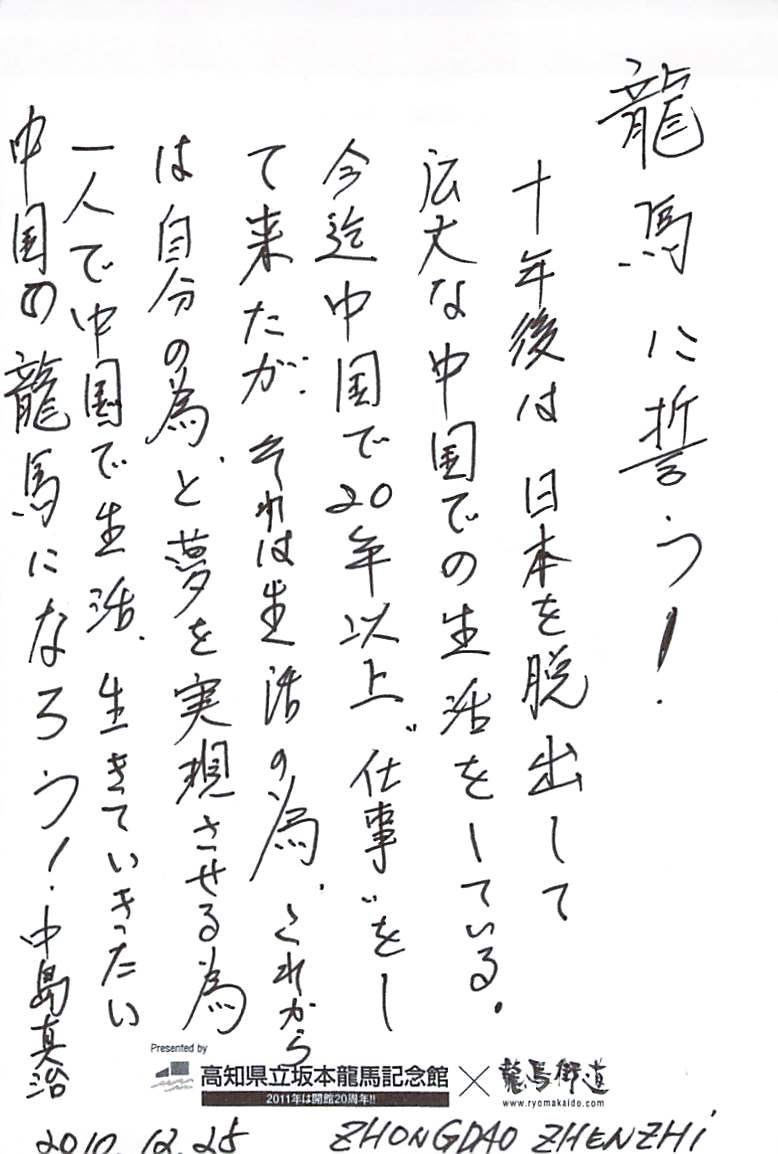 龍馬に誓う!
十年後は日本を脱出して
広大な中国での生活をしている。
今迄中国で20年以上"仕事"をし
て来たが、それは生活の為、これから
は自分の為、と夢を実現させる為
一人で中国で生活、生きていきったい
中国の龍馬になろう!中島真治
Presented by
高知県立坂本龍馬記念館
2011年は開館20周年!!
×
龍馬街道
www.ryomakaido.com
2010.12.25 ZHONGDAO ZHENZHi